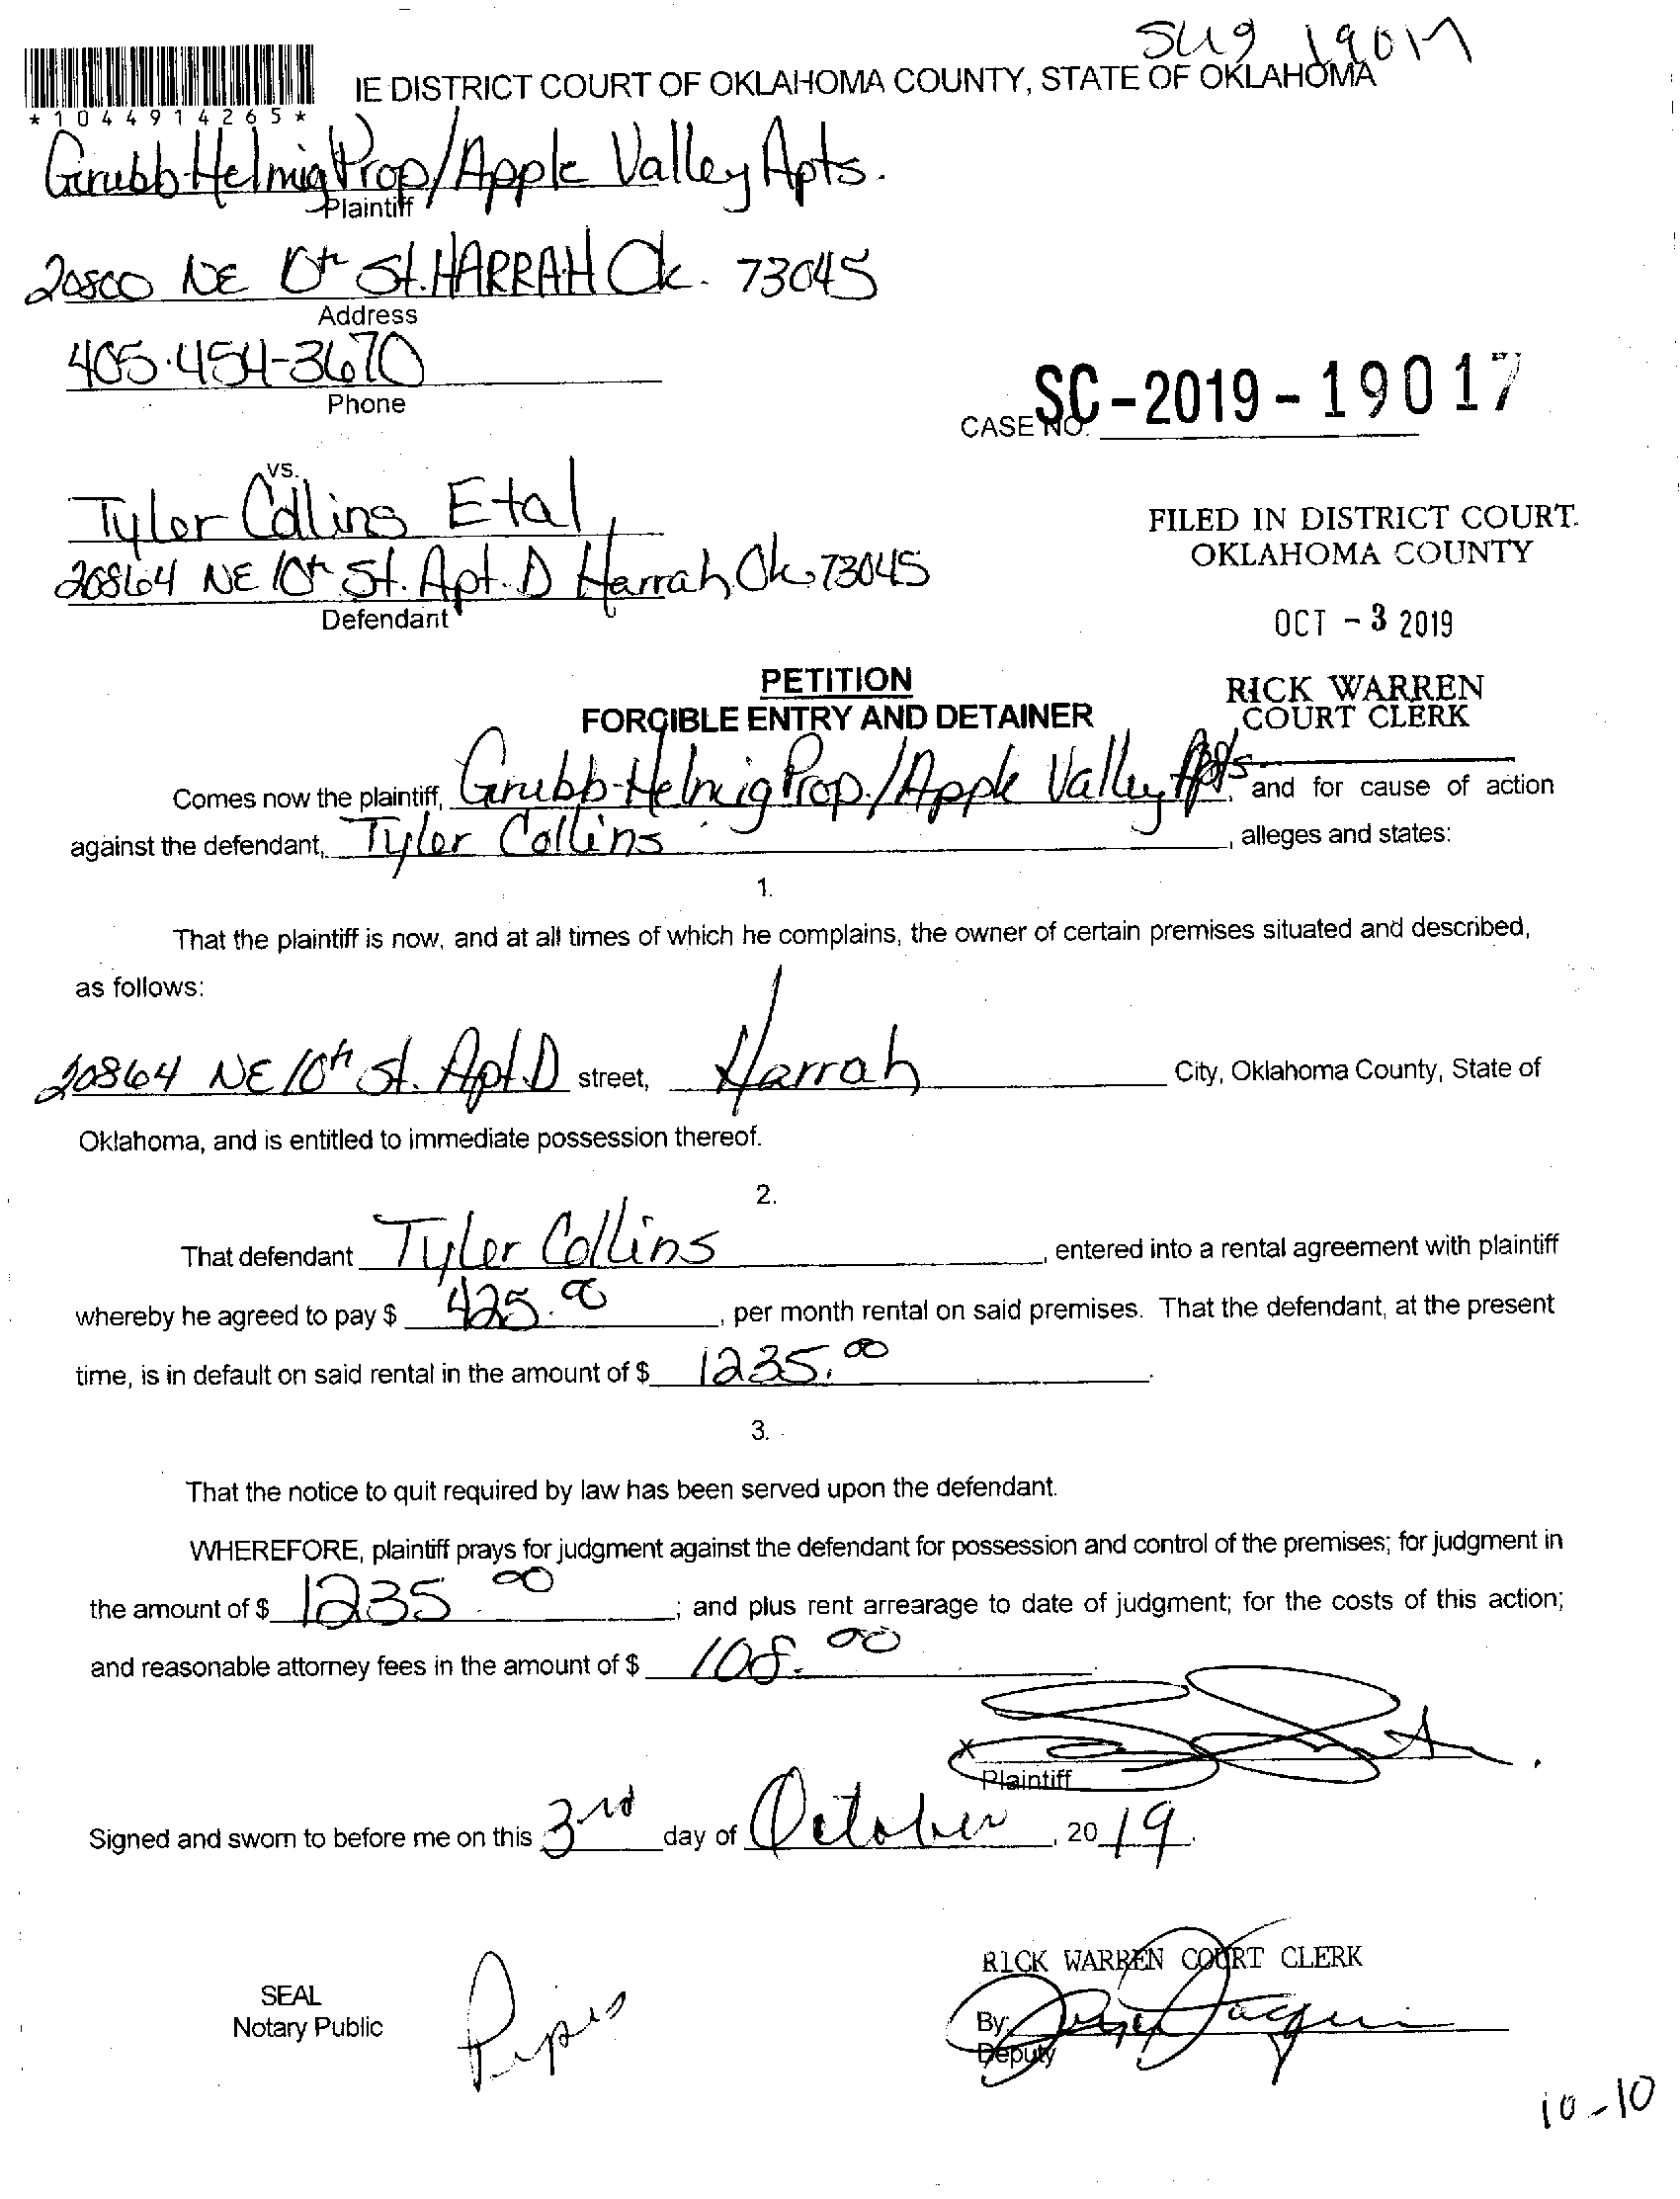 SC19 19017
IE DISTRICT COURT OF OKLAHOMA COUNTY, STATE OF OKLAHOMA
*1044914265*
Grubb-Helmig Prop/Apple Valley Apts.
Plaintiff
20800 NE 10th St. HARRAH Ok. 73045
Address
405-454-3670
Phone
CASE NO. SC-2019-19017
vs.
Tyler Collins Etal,
20864 NE 10th St. Apt. D Harrah, Ok 73045
Defendant
FILED IN DISTRICT COURT
OKLAHOMA COUNTY
OCT -3 2019
RICK WARREN
COURT CLERK
PETITION
FORCIBLE ENTRY AND DETAINER
Comes now the plaintiff, Grubb-Helmig Prop./Apple Valley Apts., and for cause of action
against the defendant, Tyler Collins, alleges and states:
1.
That the plaintiff is now, and at all times of which he complains, the owner of certain premises situated and described,
as follows:
20864 NE 10th St. Apt. D street, Harrah City, Oklahoma County, State of
Oklahoma, and is entitled to immediate possession thereof.
2.
That defendant Tyler Collins, entered into a rental agreement with plaintiff
whereby he agreed to pay $ 425.00, per month rental on said premises. That the defendant, at the present
time, is in default on said rental in the amount of $ 1235.00.
3.
That the notice to quit required by law has been served upon the defendant.
WHEREFORE, plaintiff prays for judgment against the defendant for possession and control of the premises; for judgment in
the amount of $ 1235 00; and plus rent arrearage to date of judgment; for the costs of this action;
and reasonable attorney fees in the amount of $ 108.00
X
Plaintiff
Signed and sworn to before me on this 3rd day of October, 2019.
RICK WARREN COURT CLERK
SEAL
Notary Public
By:
Deputy
10-10